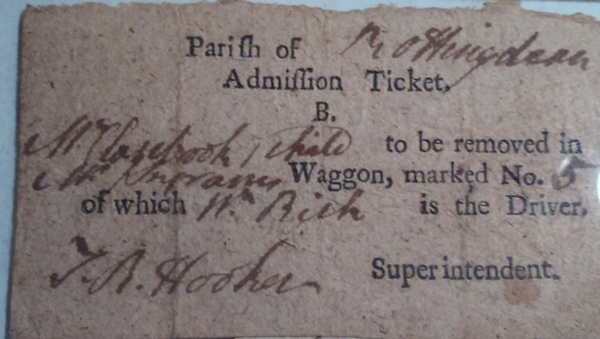 Pariſh of Rottingdean
Admiſſion Ticket.
B.
1 Child to be removed in
Mr Ingrams Waggon, marked No. 5
of which Wm. Rich is the Driver.
T. R. Hooker Superintendent.